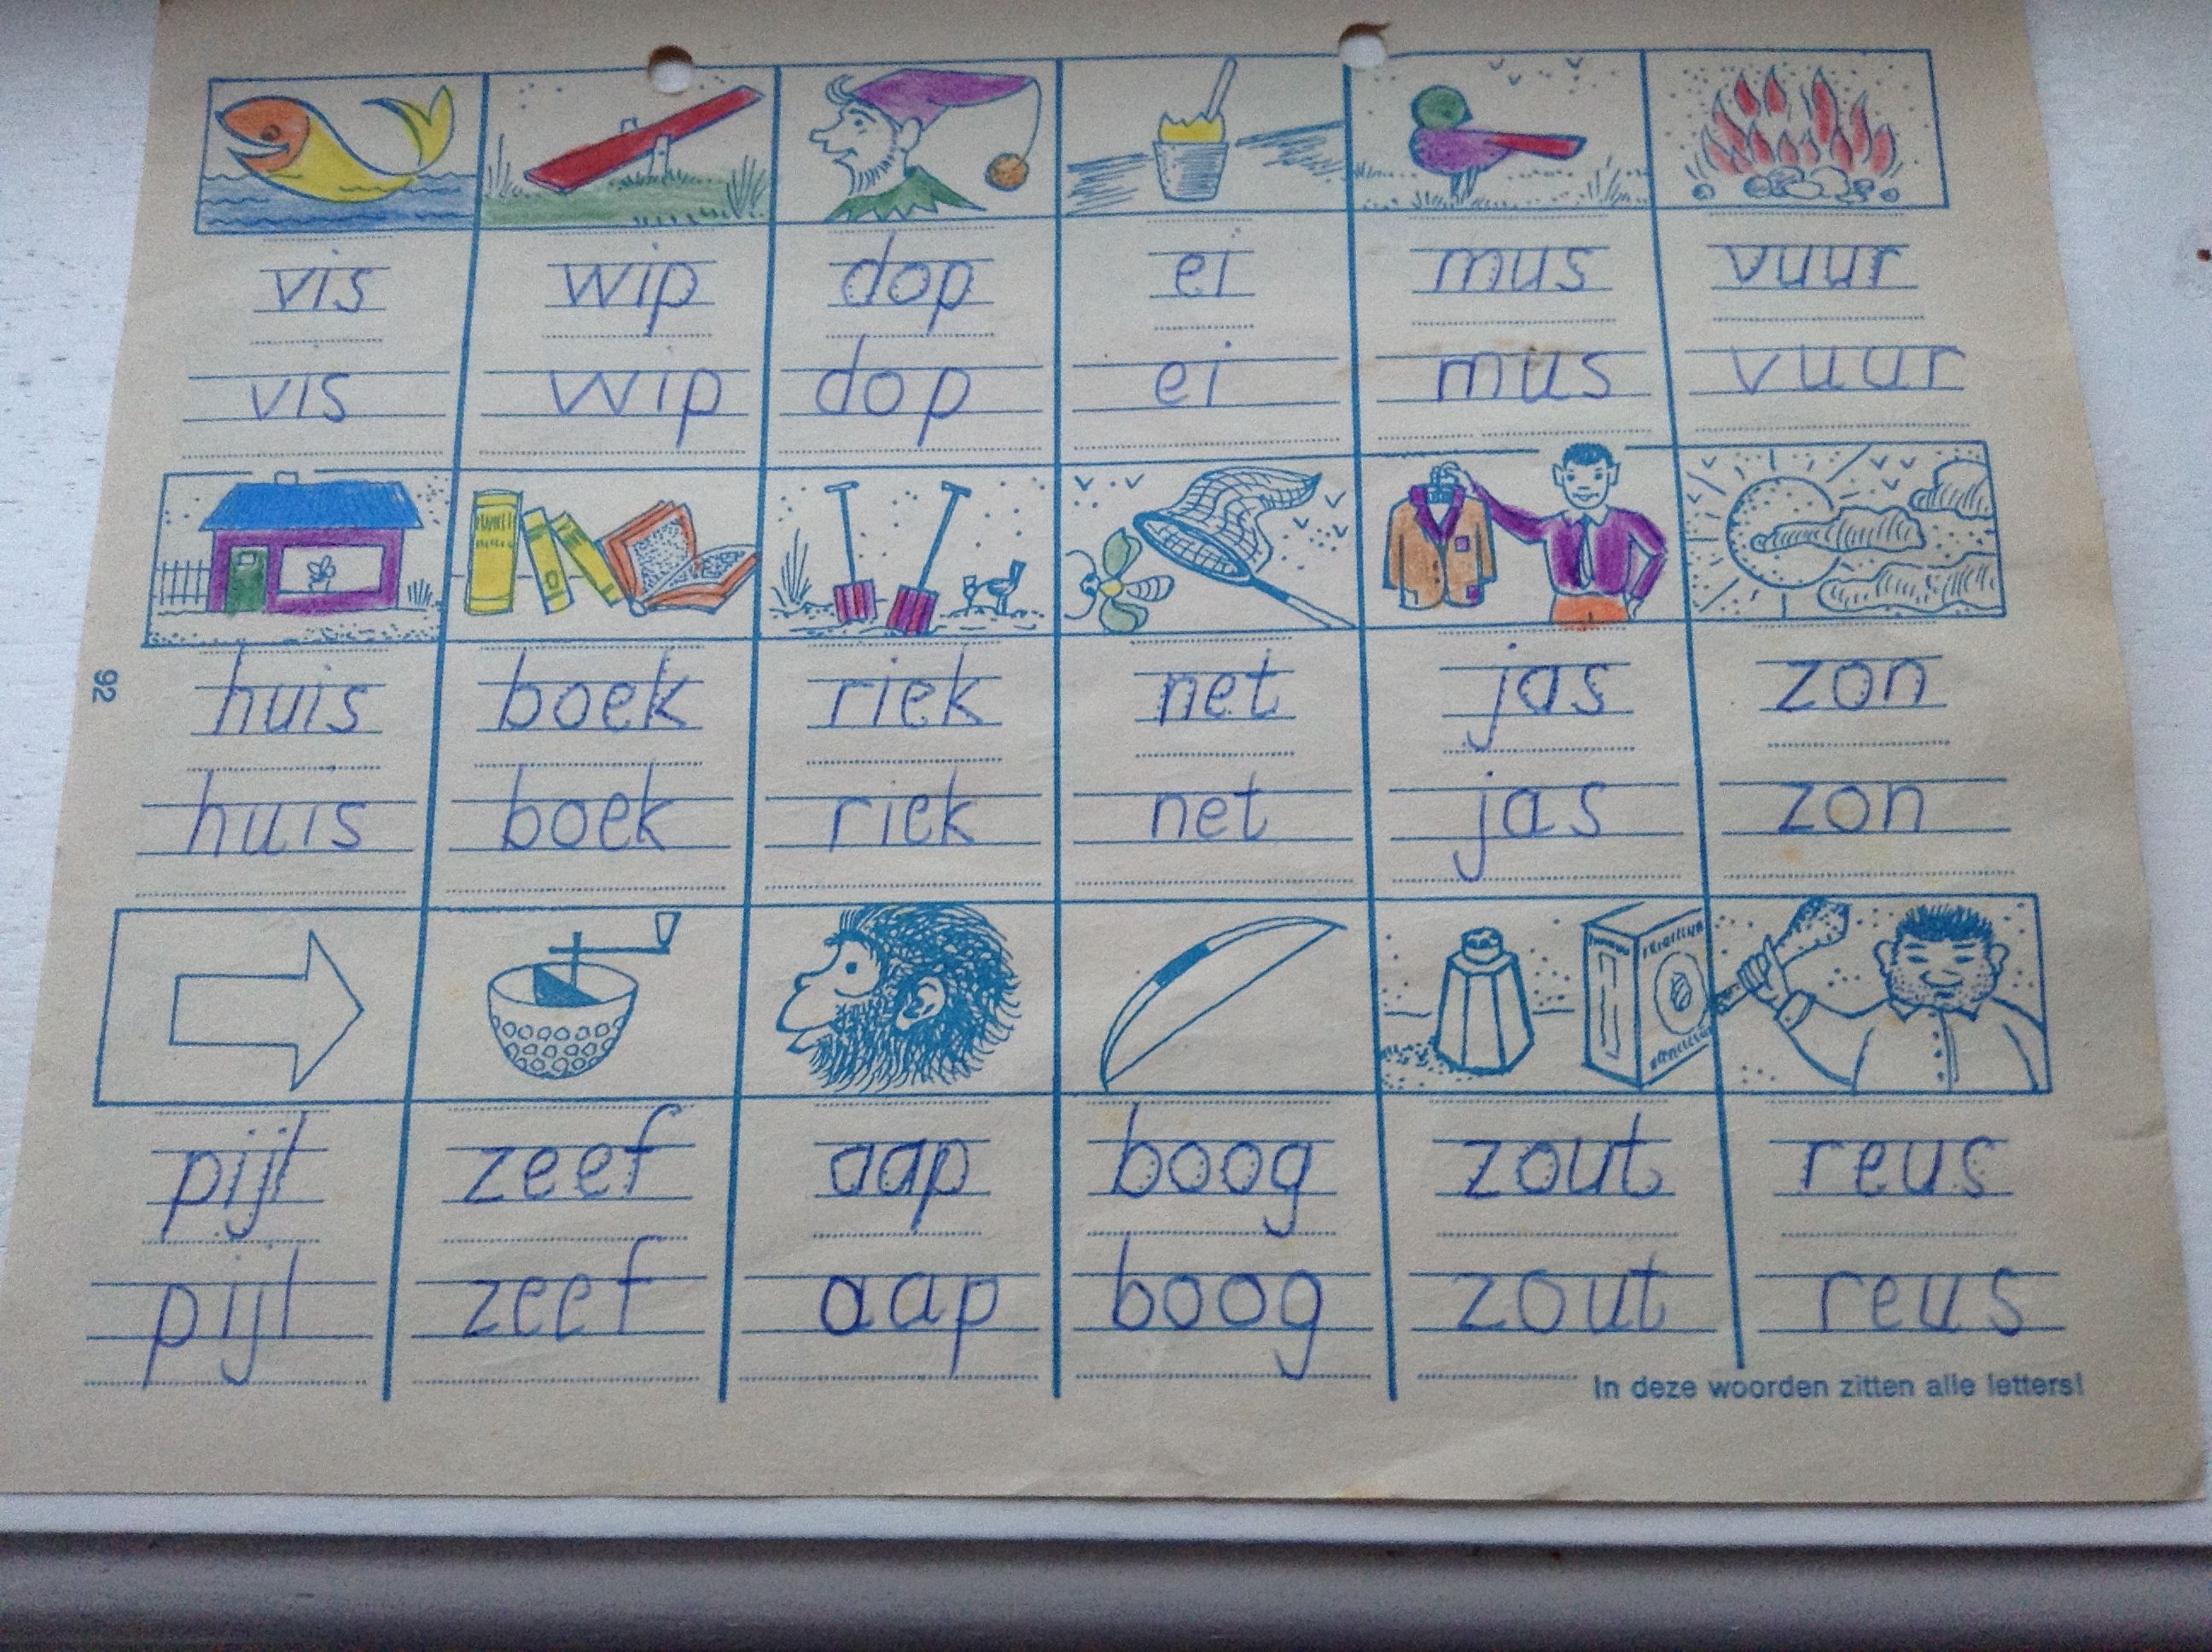 vis wip dop ei mus vuur
vis wip dop ei mus vuur
92
huis boek riek net jas zon
huis boek riek net jas zon
pijl zeef aap boog zout reus
pijl zeef aap boog zout reus
In deze woorden zitten alle letters!